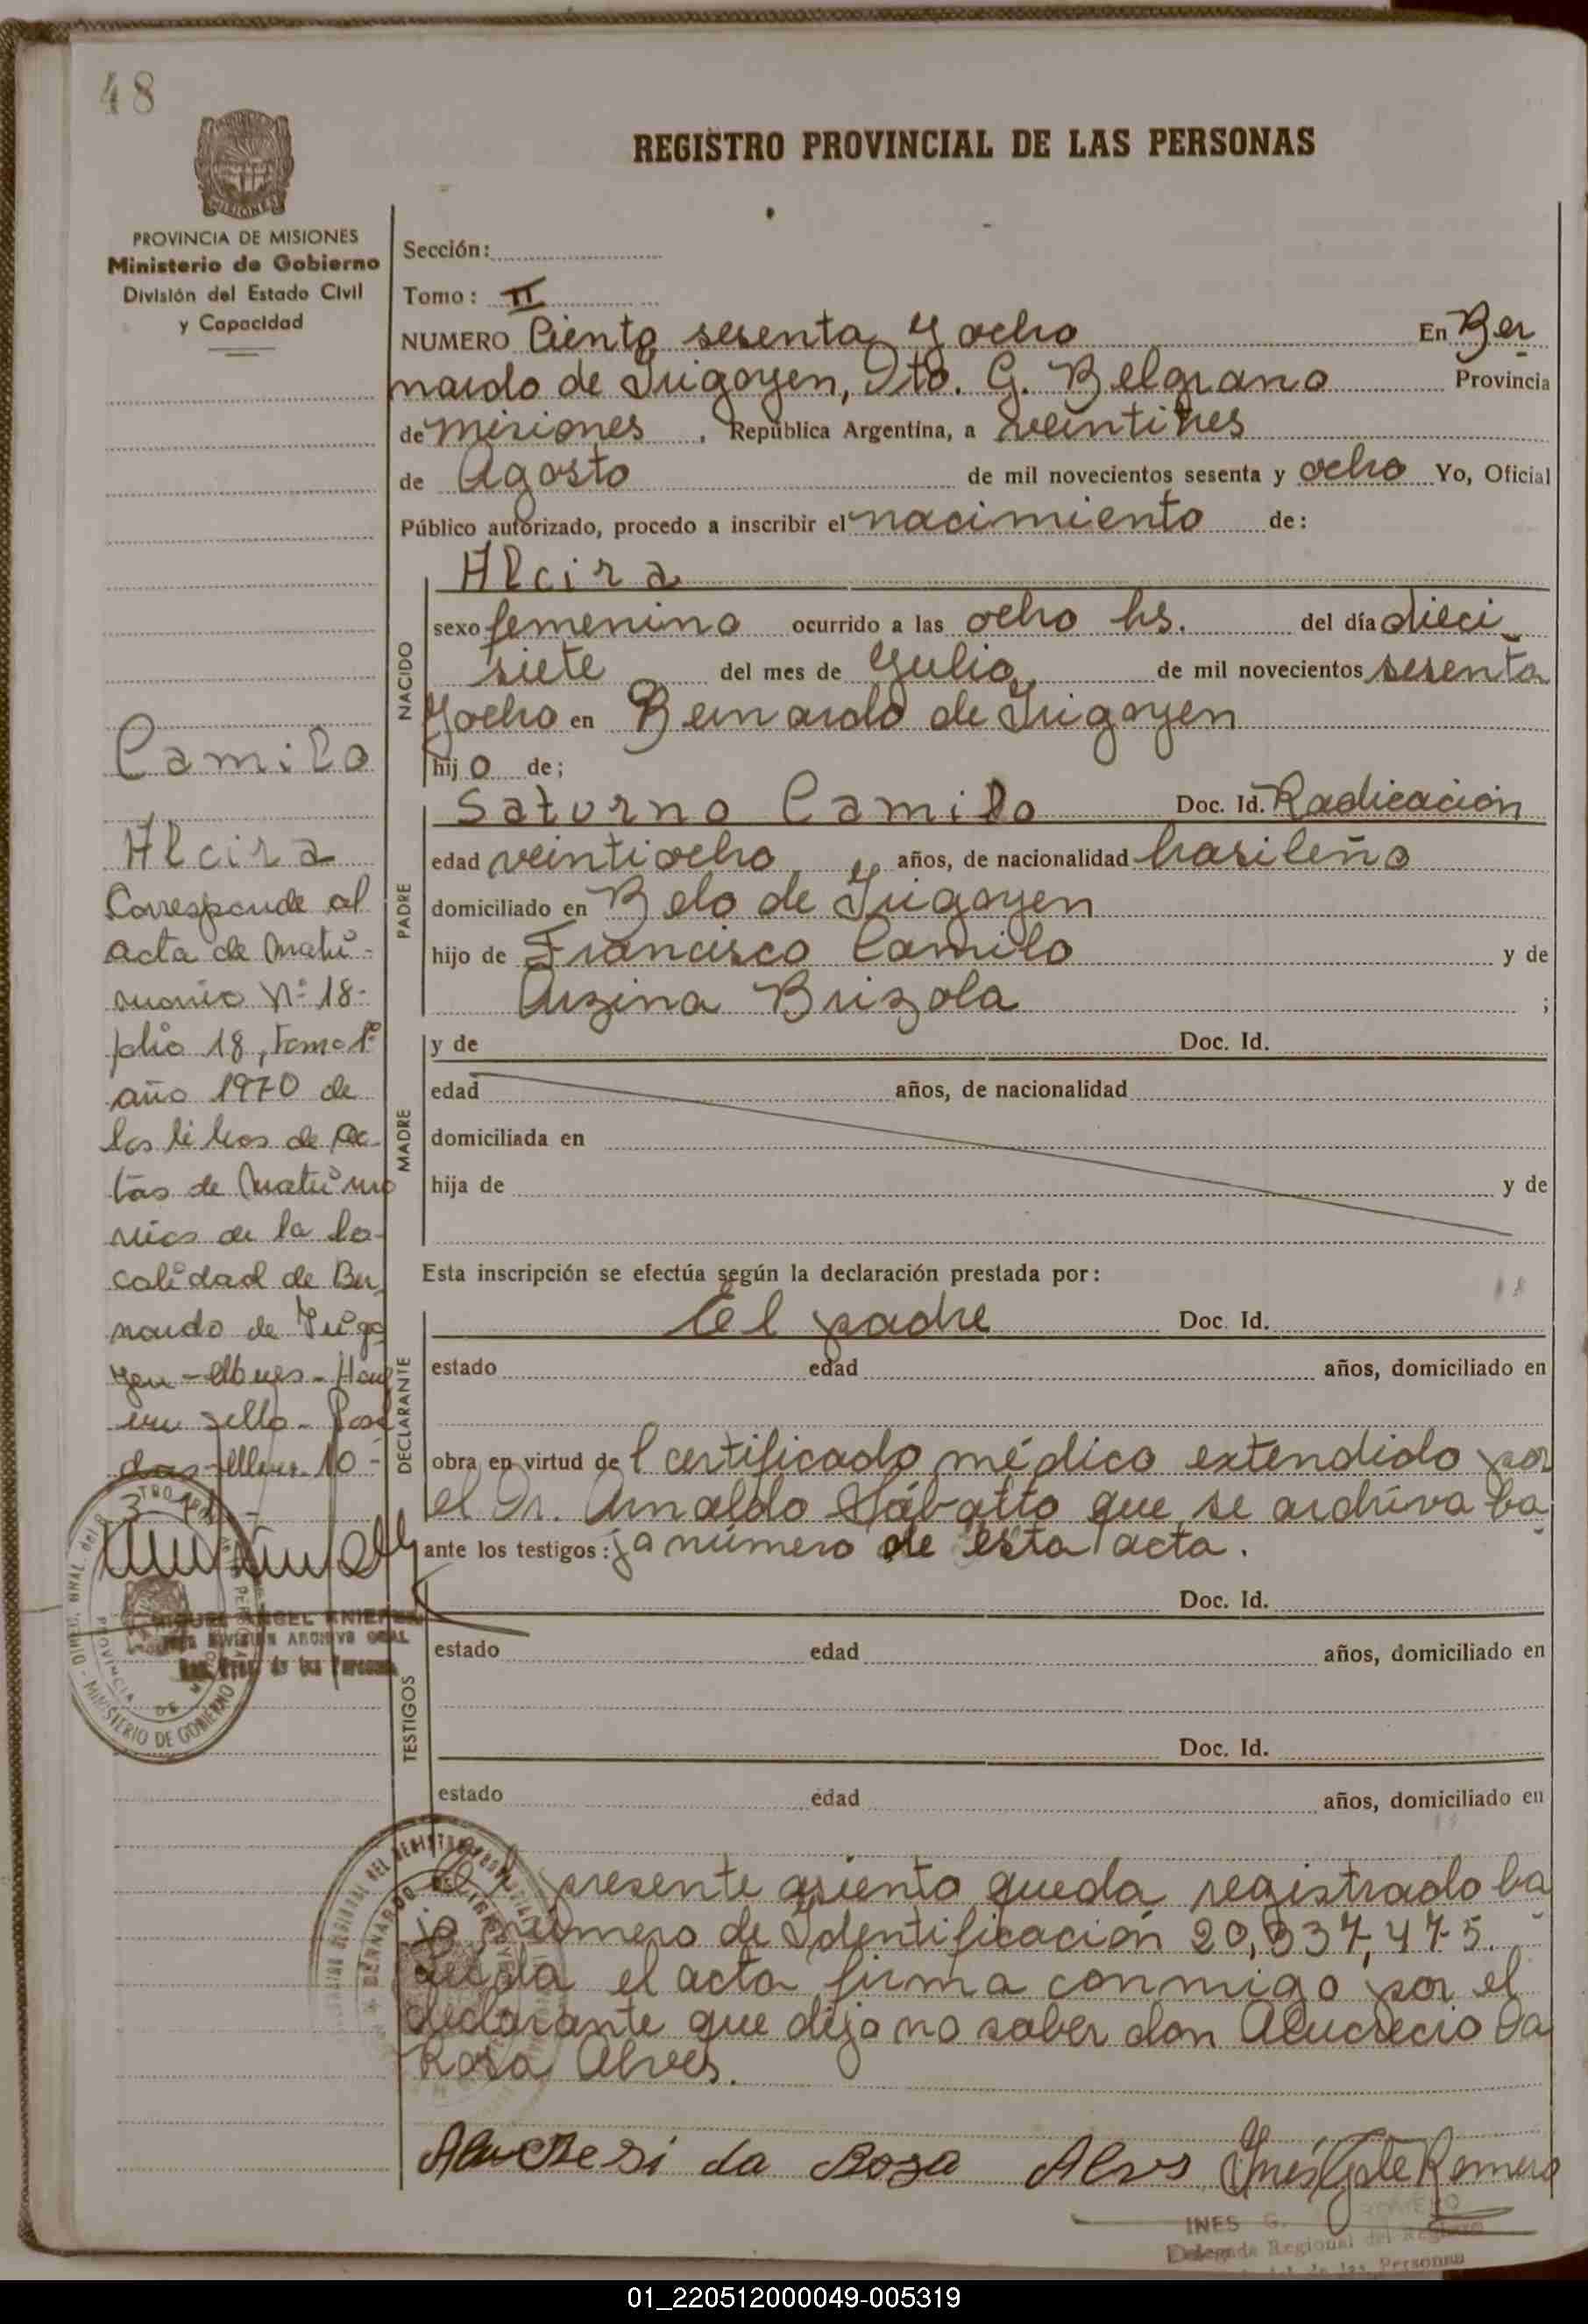 48
REGISTRO PROVINCIAL DE LAS PERSONAS
MISIONES
PROVINCIA DE MISIONES
Ministerio de Gobierno
División del Estado Civil
y Capacidad
Sección:
Tomo: II
NUMERO Ciento sesenta y ocho En Ber
nardo de Irigoyen, Dto. G. Belgrano Provincia
de Misiones, República Argentina, a veintitres
de Agosto de mil novecientos sesenta y ocho Yo, Oficial
Público autorizado, procedo a inscribir el nacimiento de:
NACIDO
Alcira
sexo femenino ocurrido a las ocho hs. del día dieci
siete del mes de Julio de mil novecientos sesenta
y ocho en Bernardo de Irigoyen
hijo de;
PADRE
Saturno Camilo Doc. Id. Radicación
edad veintiocho años, de nacionalidad brasileño
domiciliado en Bdo de Irigoyen
hijo de Francisco Camilo y de
Brizola ;
MADRE
y de Doc. Id.
edad años, de nacionalidad
domiciliada en
hija de y de
Esta inscripción se efectúa según la declaración prestada por:
DECLARANTE
el padre Doc. Id.
estado edad años, domiciliado en
obra en virtud del certificado médico extendido por
el Dr. Arnaldo que se archiva ba
ante los testigos: jo número de esta acta.
TESTIGOS
Doc. Id.
estado edad años, domiciliado en
Doc. Id.
estado edad años, domiciliado en
El presente asiento queda registrado ba
jo número de Identificación 20,337,475.
Leida el acta firma conmigo por el
declarante que dijo no saber don Alucrecio Da
Rosa Alves.
da Rosa Alvs Inés Gde Romero
INES G. ROMERO
Delegada Regional del Registro
de las Personas
Camilo
Alcira
Corresponde al
acta de matri-
monio Nº 18-
folio 18, tomo 1º
año 1970 de
los libros de ac-
tas de matrimo
nios de la lo-
calidad de Ber
nardo de Irigo
yen - - Hay
un sello - Posa
das 10 -
MIGUEL ANGEL
JEFE DIVISION ARCHIVO GRAL
Reg. Prov. de las Personas
MINISTERIO DE GOBIERNO
PROVINCIA DE
BERNARDO DE IRIGOYEN
01_220512000049-005319